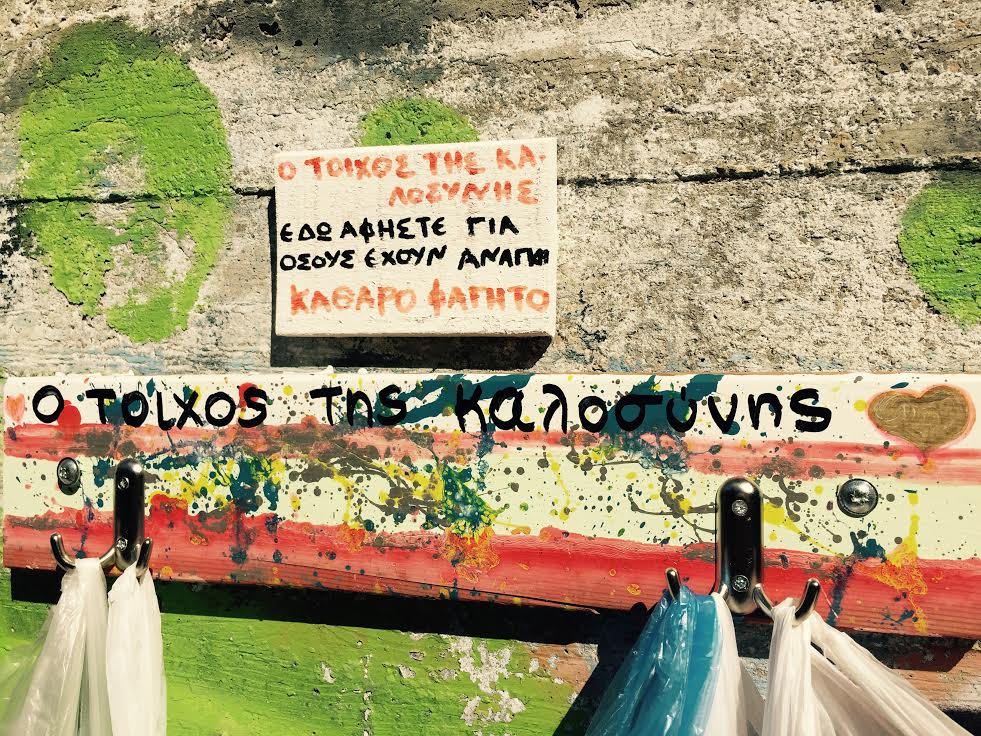 Ο ΤΟΙΧΟΣ ΤΗΣ ΚΑ-
ΛΟΣΥΝΗΣ
ΕΔΩ ΑΦΗΣΤΕ ΓΙΑ
ΟΣΟΥΣ ΕΧΟΥΝ ΑΝΑΓΚΗ
ΚΑΘΑΡΟ ΦΑΓΗΤΟ
Ο τοιχος της Καλοσύνης